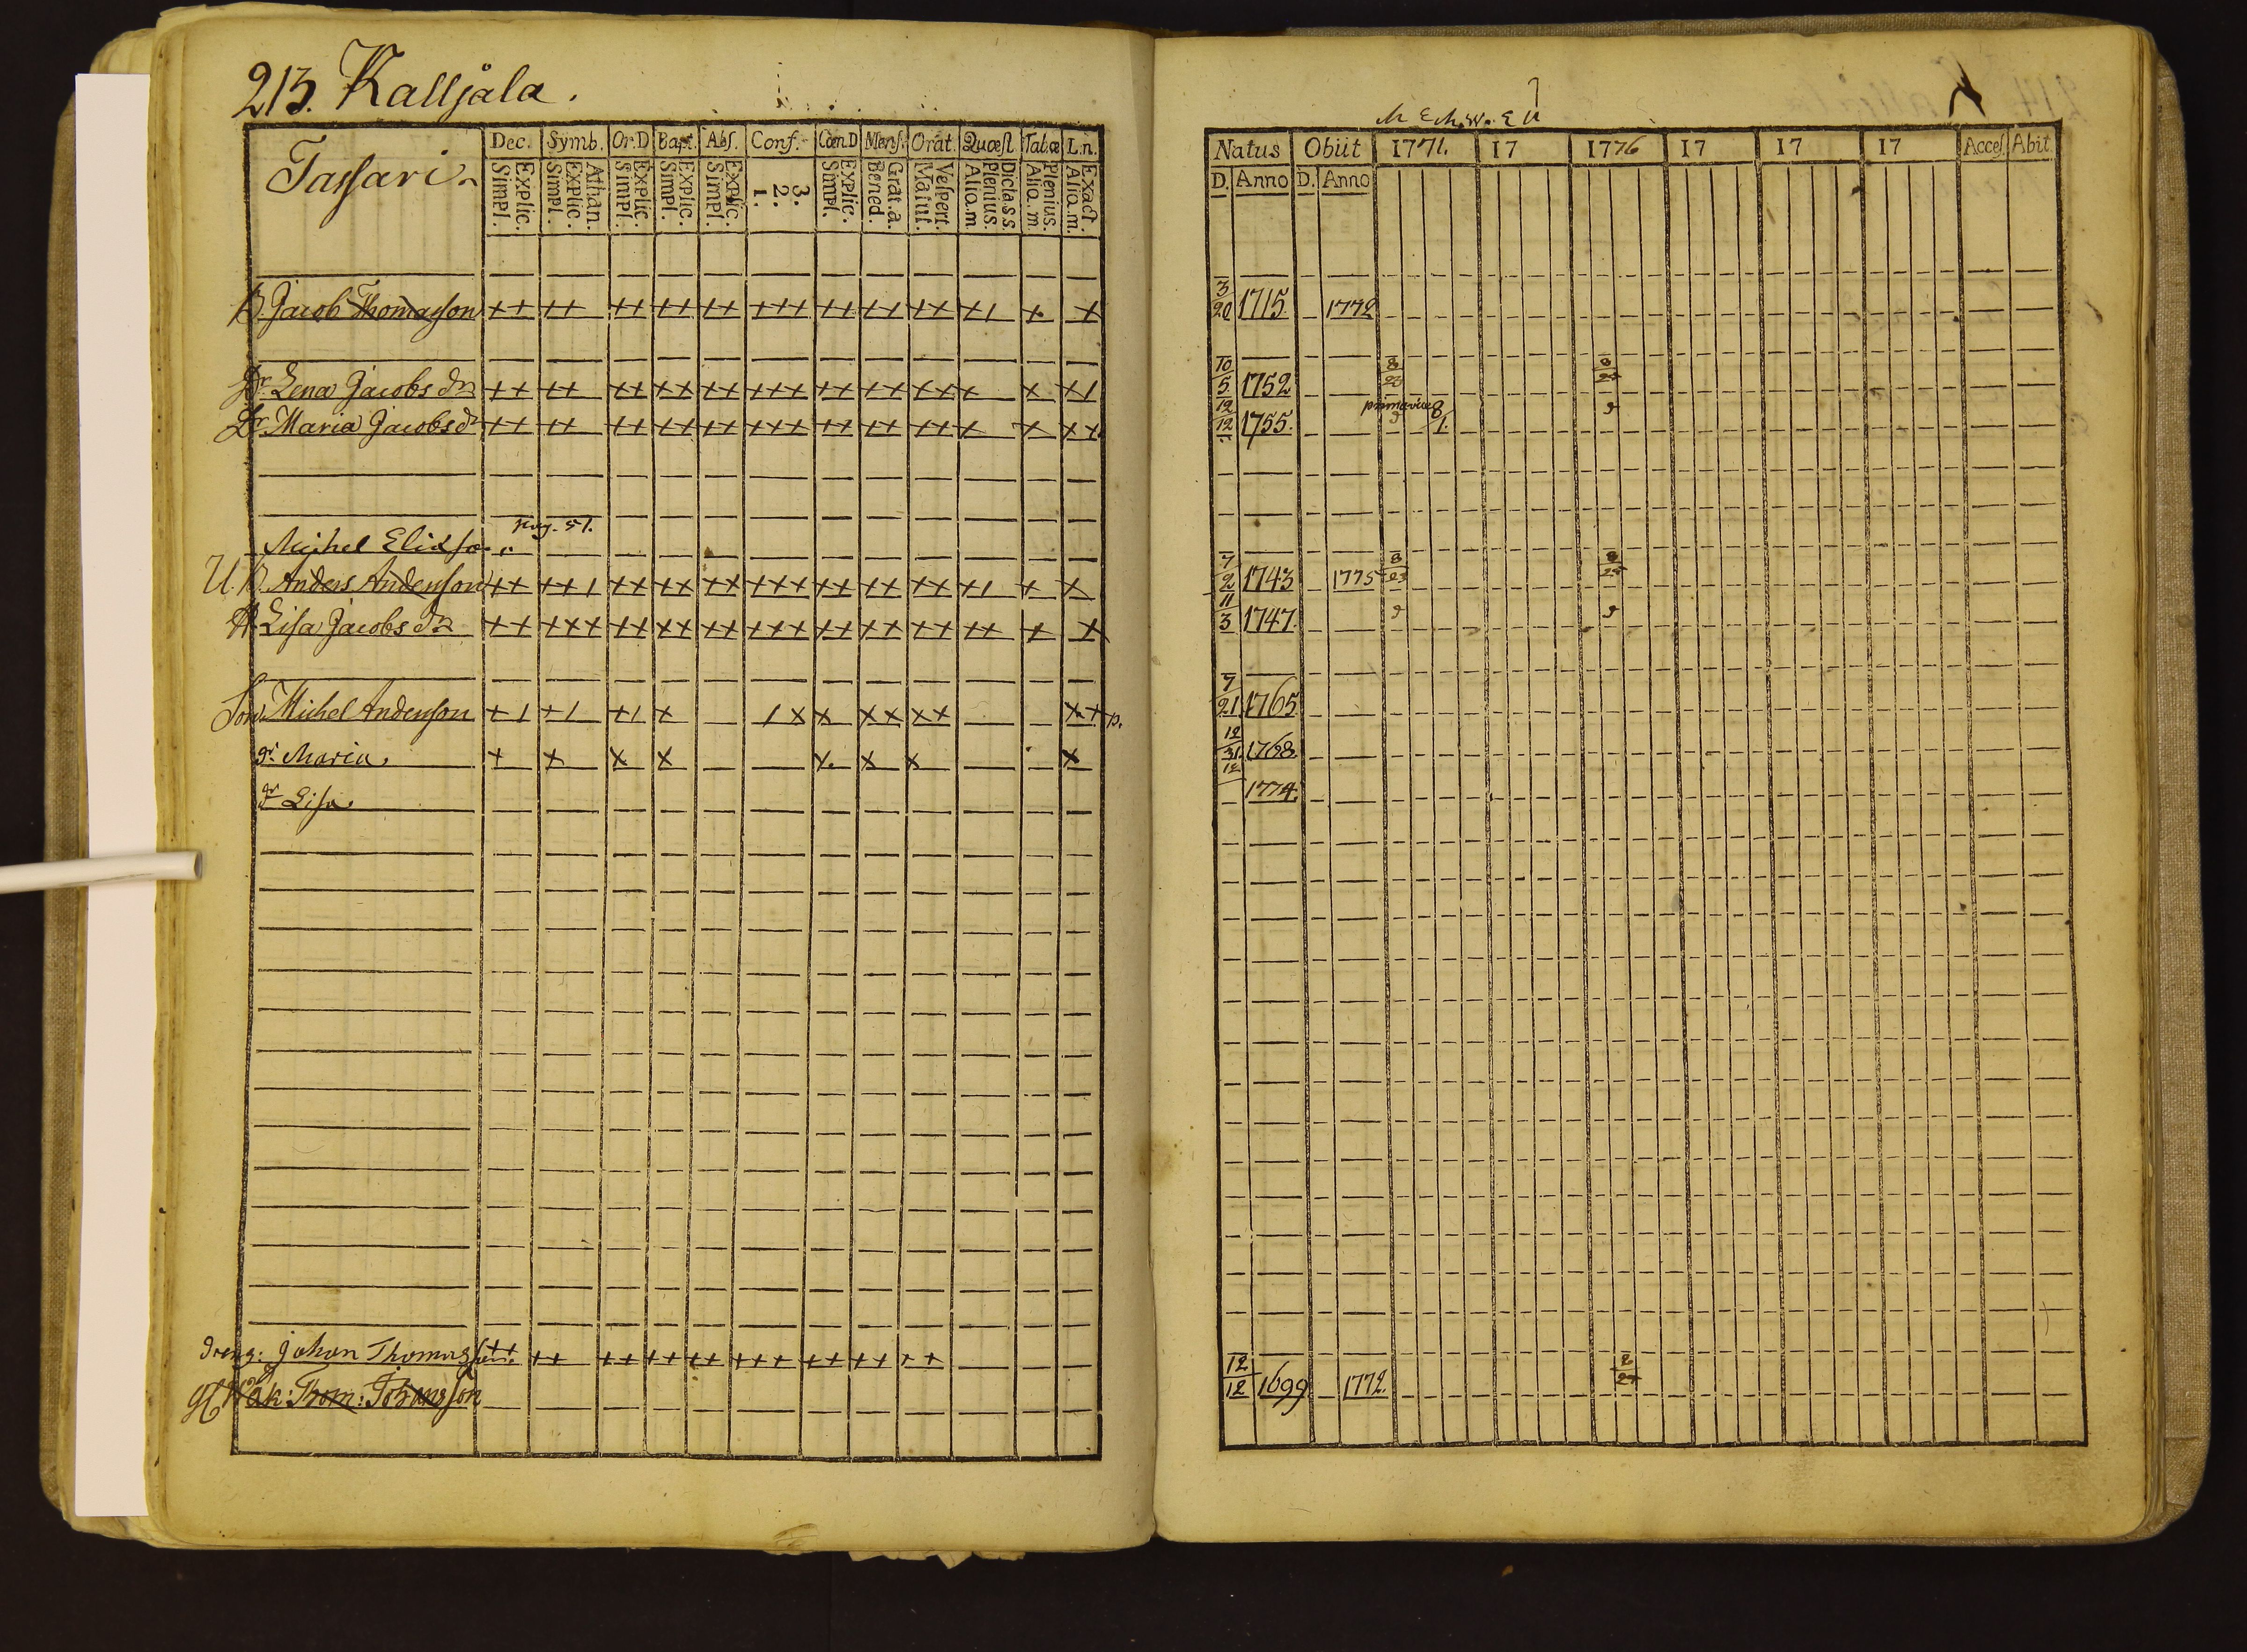 213. Kalljala.
Dec. Symb. Or.D Bapt. Abs. Conf. Cœn.D Mens. Orat. Quœst Tab.œ L.n.
Tassari
Explic. Simpl. Athan. Explic. Simpl. Explic. Simpl. Explic. Simpl. Explic. Simpl. 3. 2. 1. Explic. Simpl. Grat.a. Bened. Vespert. Matut. Dicta s s. Plenius. Aliq.m Plenius. Aliq.m Exact. Aliq.m.
B. Jacob Thomasson ++ ++ ++ ++ ++ +++ ++ ++ ++ +1 + +
Dr. Lena Jacobs dr ++ ++ ++ ++ ++ +++ ++ ++ ++ + + +1
Dr. Maria Jacobs dr ++ ++ ++ ++ ++ +++ ++ ++ ++ + + ++
pag. 51.
Michel
U. B. Anders Andersson ++ ++1 ++ ++ ++ +++ ++ ++ ++ +1 + +
H. Lisa Jacobs dr ++ +++ ++ ++ ++ +++ ++ ++ ++ ++ + +
Son Michel Andersson +1 +1 +1 + 1+ + ++ ++ ++ p.
dr. Maria. + + + + + + + +
dr Lisa.
dreng: Johan Thomasson ++ ++ ++ ++ ++ +++ ++ ++ ++
Thom: Johansson
Natus Obiit 1771. 17 1776 17 17 17 Acces Abit
D. Anno D. Anno
3/20 1715 1772
10/5 1752 8/23 8/25
12/12 1755. 9 8/1. 9
7/2 1743 1775 8/23 8/25
11/3 1747 9 9
7/21 1765
12/31 1768.
12 1774.
12/12 1699 1772.